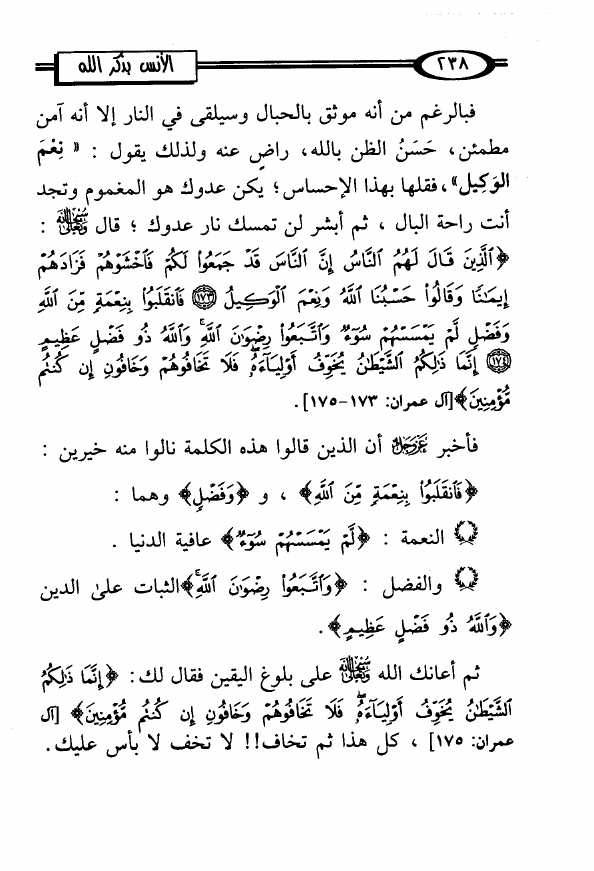 الأنس بذكر الله ٢٣٨
فبالرغم من أنه موثق بالحبال وسيلقى في النار إلا أنه آمن
مطمئن، حَسَنُ الظن بالله، راضٍ عنه ولذلك يقول : « نِعْمَ
الوَكِيل»، فقلها بهذا الإحساس؛ يكن عدوك هو المغموم وتجد
أنت راحة البال ، ثم أبشر لن تمسك نار عدوك ؛ قال سبحانه وتعالى :
﴿ٱلَّذِينَ قَالَ لَهُمُ ٱلنَّاسُ إِنَّ ٱلنَّاسَ قَدْ جَمَعُوا۟ لَكُمْ فَٱخْشَوْهُمْ فَزَادَهُمْ
إِيمَـٰنًا وَقَالُوا۟ حَسْبُنَا ٱللَّهُ وَنِعْمَ ٱلْوَكِيلُ ١٧٣ فَٱنقَلَبُوا۟ بِنِعْمَةٍ مِّنَ ٱللَّهِ
وَفَضْلٍ لَّمْ يَمْسَسْهُمْ سُوٓءٌ وَٱتَّبَعُوا۟ رِضْوَٰنَ ٱللَّهِ ۗ وَٱللَّهُ ذُو فَضْلٍ عَظِيمٍ
١٧٤ إِنَّمَا ذَٰلِكُمُ ٱلشَّيْطَـٰنُ يُخَوِّفُ أَوْلِيَآءَهُۥ فَلَا تَخَافُوهُمْ وَخَافُونِ إِن كُنتُم
مُّؤْمِنِينَ﴾[آل عمران: ١٧٣-١٧٥].
فأخبر عز وجل أن الذين قالوا هذه الكلمة نالوا منه خيرين :
﴿فَٱنقَلَبُوا۟ بِنِعْمَةٍ مِّنَ ٱللَّهِ﴾ ، و ﴿وَفَضْلٍ﴾ وهما :
النعمة : ﴿لَّمْ يَمْسَسْهُمْ سُوٓءٌ﴾ عافية الدنيا .
والفضل : ﴿وَٱتَّبَعُوا۟ رِضْوَٰنَ ٱللَّهِ ۗ﴾الثبات على الدين
﴿وَٱللَّهُ ذُو فَضْلٍ عَظِيمٍ﴾.
ثم أعانك الله سبحانه وتعالى على بلوغ اليقين فقال لك: ﴿إِنَّمَا ذَٰلِكُمُ
ٱلشَّيْطَـٰنُ يُخَوِّفُ أَوْلِيَآءَهُۥ فَلَا تَخَافُوهُمْ وَخَافُونِ إِن كُنتُم مُّؤْمِنِينَ﴾ [آل
عمران: ١٧٥] ، كل هذا ثم تخاف!! لا تخف لا بأس عليك.